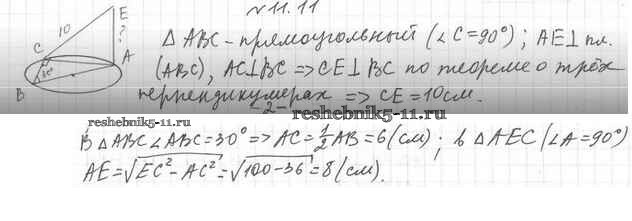 №11.11
E
10
?
C
30°
A
B
Δ ABC - прямоугольный (∠C=90°); AE⊥ пл.
(ABC), AC⊥BC ⇒ CE⊥BC по теореме о трёх
перпендикулярах ⇒ CE=10см.
-2-
reshebnik5-11.ru
reshebnik5-11.ru
В Δ ABC ∠ABC=30° ⇒ AC=1/2 AB=6(см); в Δ AEC (∠A=90°)
AE=√EC²-AC²=√100-36=8(см).